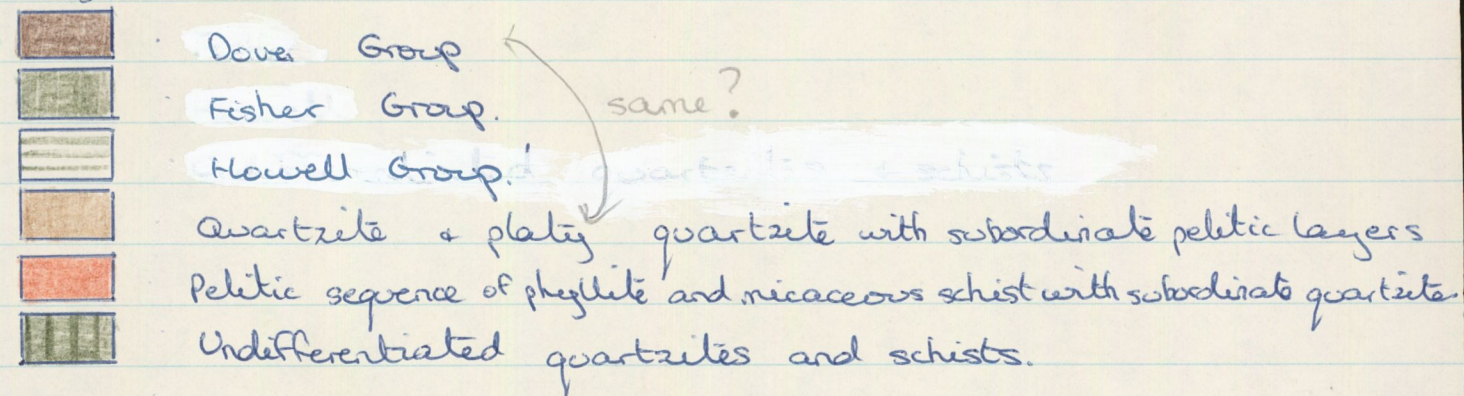 Dover Group
Fisher Group.
same?
Howell Group.
Quartzite & platey quartzite with subordinate pelitic layers
Pelitic sequence of phyllite and micaceous schist with subordinate quartzite.
Undifferentiated quartzites and schists.